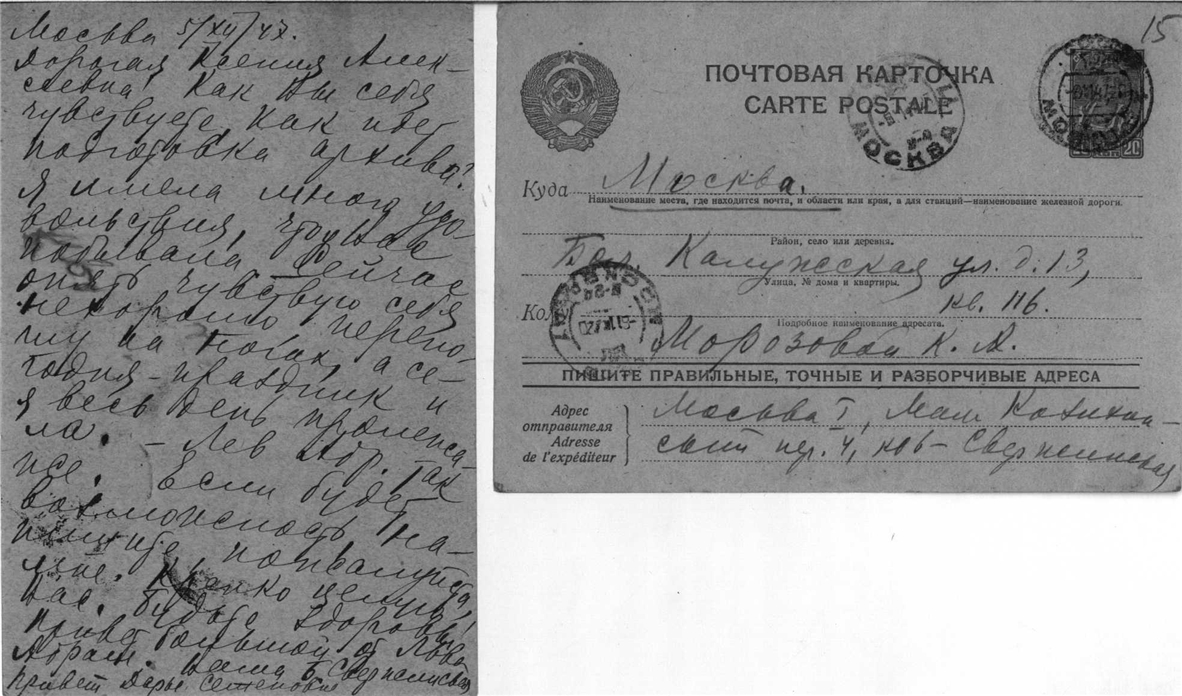 Москва 5/XII/47.
Дорогая Ксения Алек-
сеевна! Как Вы себя
чувствуете, как идет
подготовка архива?
Я имела много удо-
вольствия, что у Вас
побывала. Сейчас
опять чувствую себя
нехорошо, перено-
шу на ногах, а се-
годня - праздник и
я весь день пролежа-
ла. - Лев Абр. так
же. Если будет
возможность на-
пишите, пожалуйста,
мне. Крепко целую
Вас. Будьте здоровы!
Привет большой от Льва
Абрам. Ваша Б. Свержинская
Привет Дарье Семеновне
15
ПОЧТОВАЯ КАРТОЧКА
CARTE POSTALE
МОСКВА
МОСКВА
20
Куда Москва.
Наименование места, где находится почта, и области или края, а для станций—наименование железной дороги.
Район, село или деревня.
Бол. Калужская ул. д. 13,
Улица, № дома и квартиры.
кв. 116.
Подробное наименование адресата.
Морозовой К. А.
ПИШИТЕ ПРАВИЛЬНЫЕ, ТОЧНЫЕ И РАЗБОРЧИВЫЕ АДРЕСА
Адрес
отправителя
Adresse
de l'expéditeur
Москва I, Мал Козихин-
ский пер. 4, Свержинская